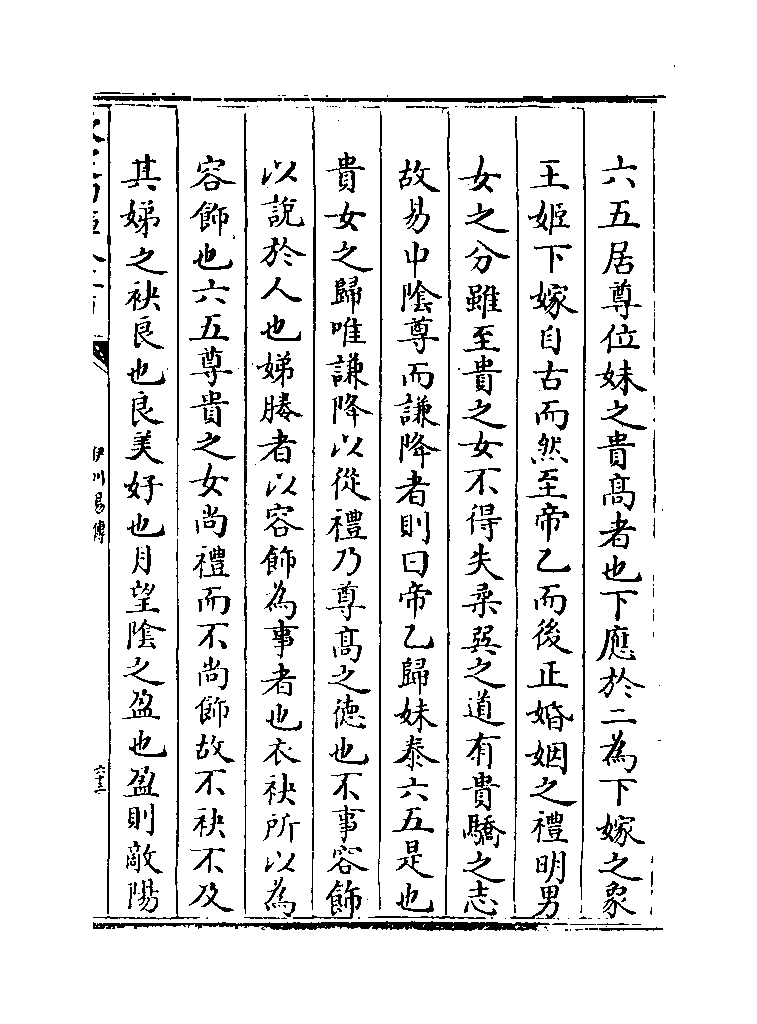 六五居尊位妹之貴髙者也下應於二為下嫁之象
王姬下嫁自古而然至帝乙而後正婚姻之禮明男
女之分雖至貴之女不得失柔巽之道有貴驕之志
故易中隂尊而謙降者則曰帝乙歸妹泰六五是也
貴女之歸唯謙降以從禮乃尊髙之徳也不事容飾
以說於人也娣媵者以容飾為事者也衣袂所以為
容飾也六五尊貴之女尚禮而不尚飾故不袂不及
其娣之袂良也良美好也月望隂之盈也盈則敵陽
伊川易傳